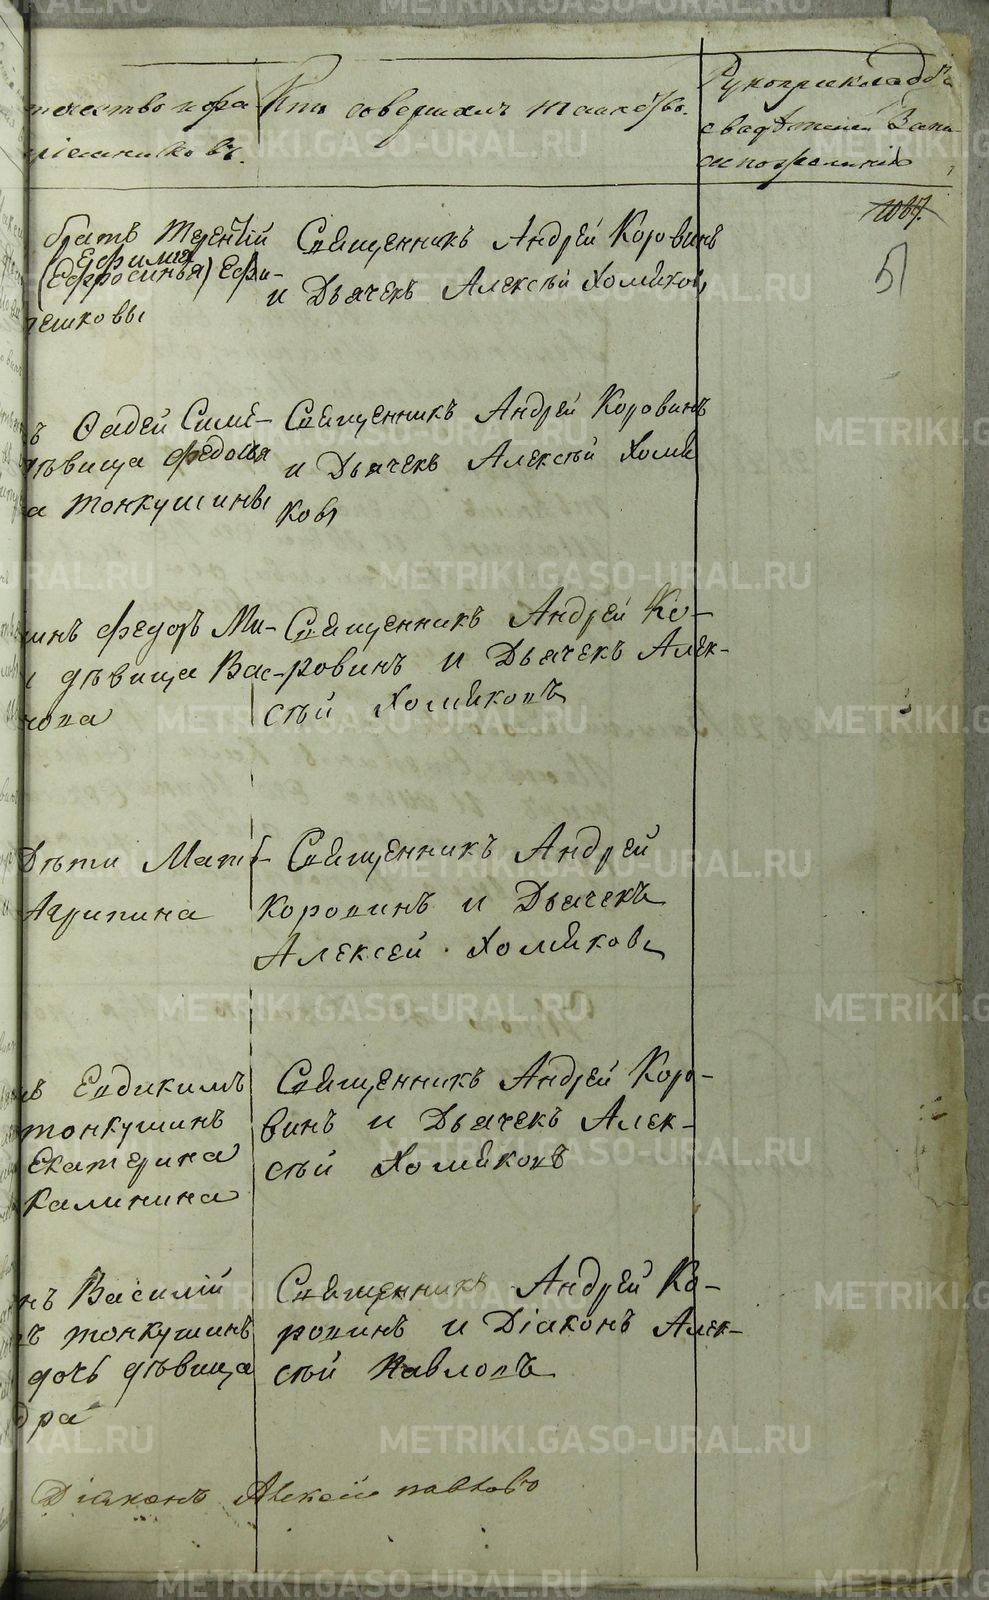 Кто совершалъ таинство.
Рукоприкладство
свидѣтелей Запи-
си по желанію
1067.
51
братъ Терентій
Ефимія
(Ефросинья) Ефи-
мешковы
Священникъ Андрей Коровинъ
и Дьячекъ Алексѣй Хомяковъ
ъ Ѳадей Симе-
дѣвица Федосья
а Тонкушины
Священникъ Андрей Коровинъ
и Дьячекъ Алексѣй Хомя
ковъ
инъ Федоръ Ми-
дѣвица Вас-
нова
Священникъ Андрей Ко-
ровинъ и Дьячекъ Алек-
сѣй Хомяковъ
Дѣти Матѳ-
Агрипина
Священникъ Андрей
Коровинъ и Дьячекъ
Алексей Хомяковъ
въ Евдикимъ
Тонкушинъ
Екатерина
Калинина
Священникъ Андрей Коро-
винъ и Дьячекъ Алек-
сѣй Хомяковъ
нъ Василій
ъ Тонкушинъ
дочь дѣвица
дра
Священникъ Андрей Ко-
ровинъ и Діаконъ Алек-
сѣй Павловъ
Діаконъ Алексѣй Павловъ
METRIKI.GASO-URAL.RU